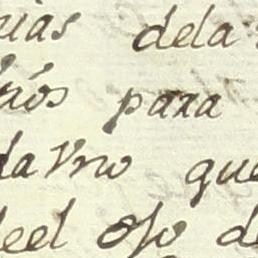 rias dela
nós para
da Vno que
deel ojo de